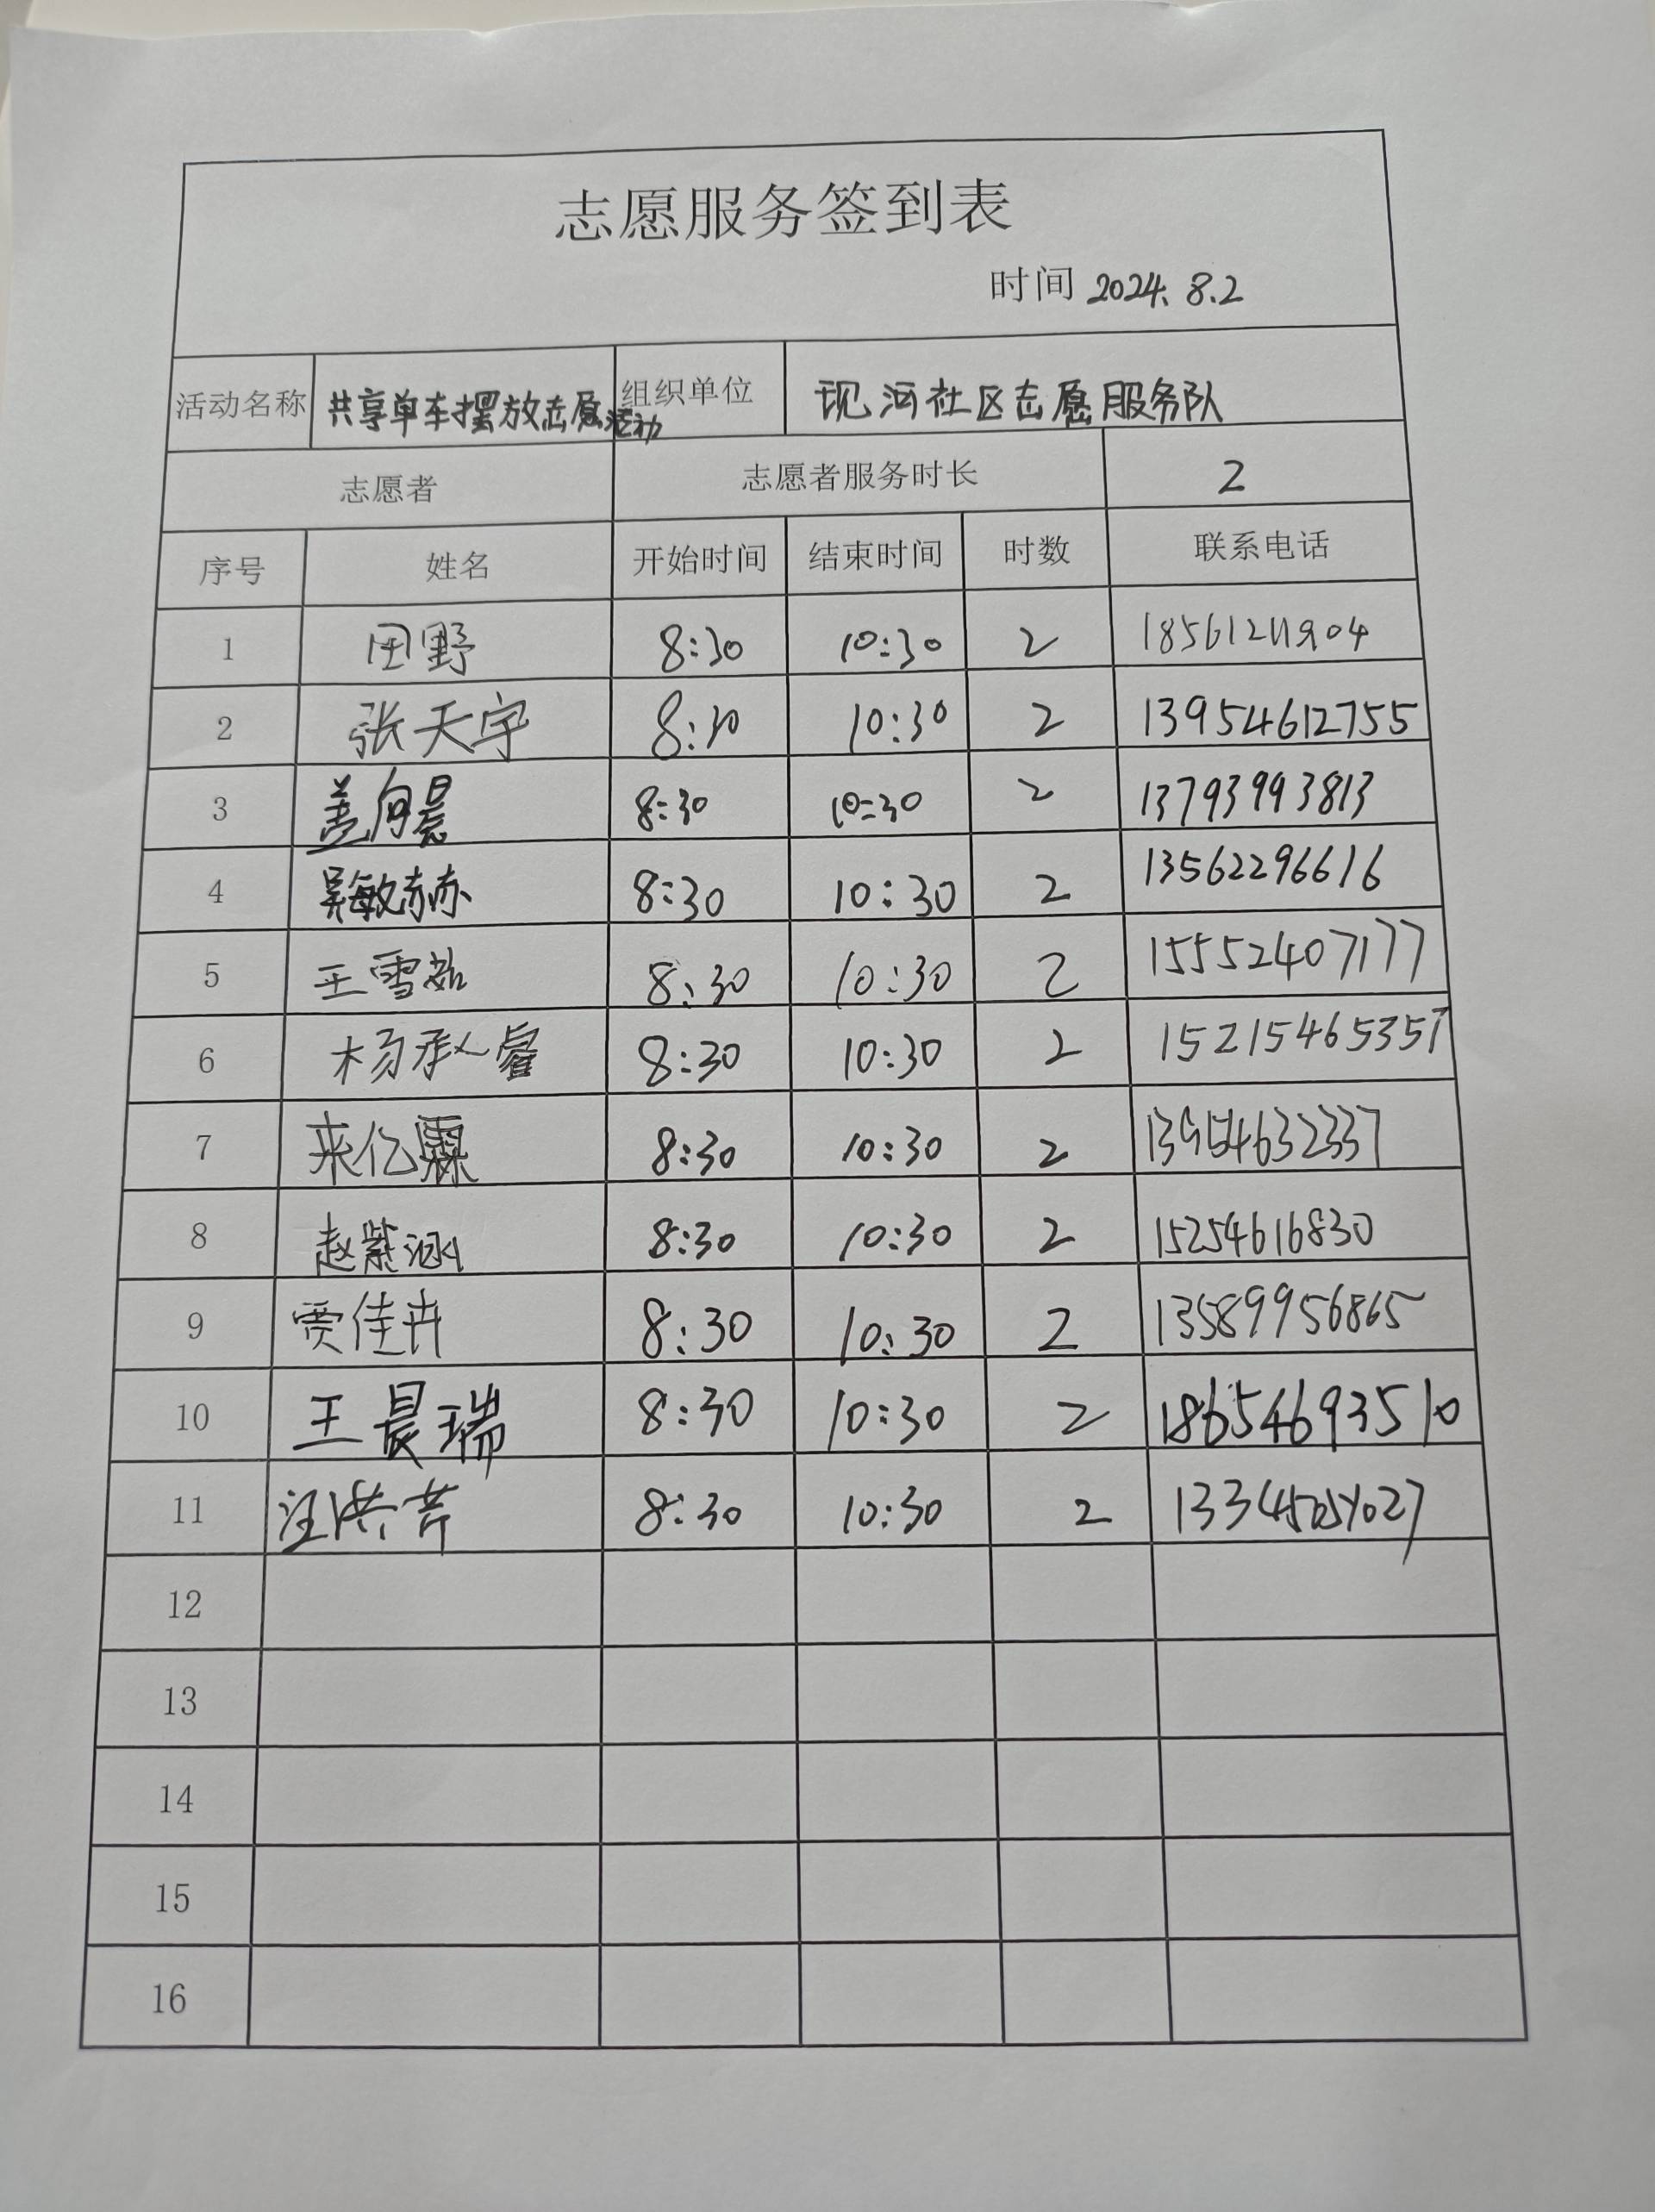 志愿服务签到表
时间 2024.8.2
活动名称 共享单车摆放志愿活动 组织单位 现河社区志愿服务队
志愿者 志愿者服务时长 2
序号 姓名 开始时间 结束时间 时数 联系电话
1 田野 8:30 10:30 2 18561211904
2 张天宇 8:30 10:30 2 13954612755
3 盖向晨 8:30 10:30 2 13793993813
4 吴敏赫 8:30 10:30 2 13562296616
5 王雪茹 8:30 10:30 2 15552407177
6 杨承睿 8:30 10:30 2 15215465357
7 来亿霖 8:30 10:30 2 13954632337
8 赵紫涵 8:30 10:30 2 15254616830
9 贾佳卉 8:30 10:30 2 13589956865
10 王晨瑞 8:30 10:30 2 18654693510
11 汪洪芹 8:30 10:30 2
12
13
14
15
16